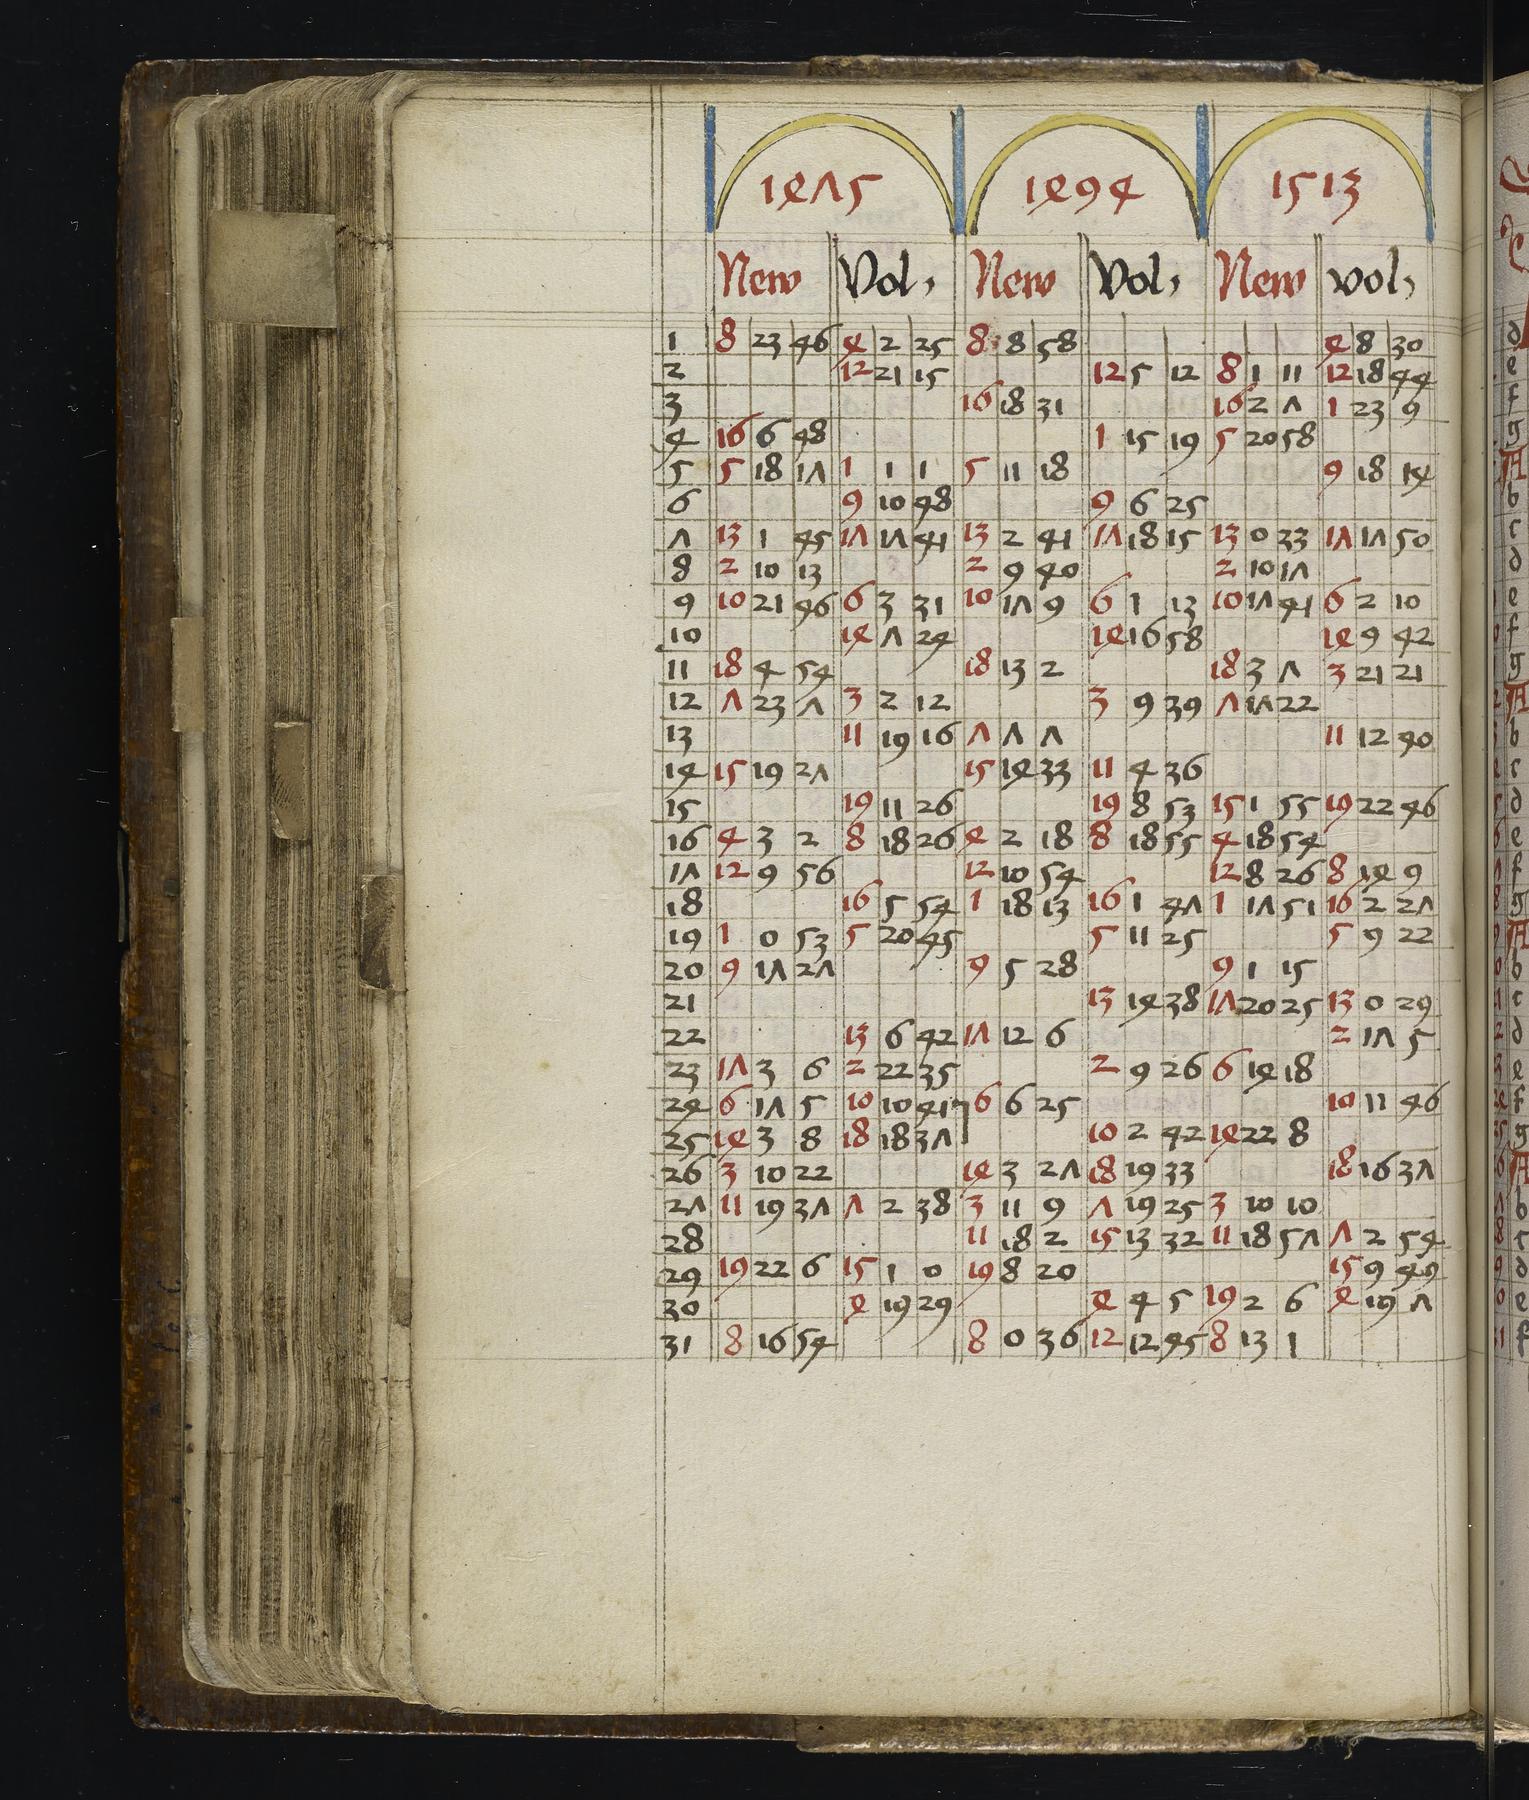 1475 1494 1513
New Vol, New Vol, New vol,
1 8 23 46 4 2 25 8 8 58 4 8 30
2 12 21 15 12 5 12 8 1 11 12 18 44
3 16 18 31 16 2 7 1 23 9
4 16 6 48 1 15 19 5 20 58
5 5 18 17 1 1 1 5 11 18 9 18 14
6 9 10 48 9 6 25
7 13 1 45 17 17 41 13 2 41 17 18 15 13 0 33 17 17 50
8 2 10 13 2 9 40 2 10 17
9 10 21 46 6 3 31 10 17 9 6 1 13 10 17 41 6 2 10
10 14 7 24 14 16 58 14 9 42
11 18 4 54 18 13 2 18 3 7 3 21 21
12 7 23 7 3 2 12 3 9 39 7 17 22
13 11 19 16 7 7 7 11 12 40
14 15 19 27 15 14 33 11 4 36
15 19 11 26 19 8 53 15 1 55 19 22 46
16 4 3 2 8 18 26 4 2 18 8 18 55 4 18 54
17 12 9 56 12 10 54 12 8 26 8 14 9
18 16 5 54 1 18 13 16 1 47 1 17 51 16 2 27
19 1 0 53 5 20 45 5 11 25 5 9 22
20 9 17 27 9 5 28 9 1 15
21 13 14 38 17 20 25 13 0 29
22 13 6 42 17 12 6 2 17 5
23 17 3 6 2 22 35 2 9 26 6 14 18
24 6 17 5 10 10 41 6 6 25 10 11 46
25 14 3 8 18 18 37 10 2 42 14 22 8
26 3 10 22 14 3 27 18 19 33 18 16 37
27 11 19 37 7 2 38 3 11 9 7 19 25 3 10 10
28 11 18 2 15 13 32 11 18 57 7 2 54
29 19 22 6 15 1 0 19 8 20 15 9 49
30 4 19 29 4 4 5 19 2 6 4 19 7
31 8 16 54 8 0 36 12 12 45 8 13 1